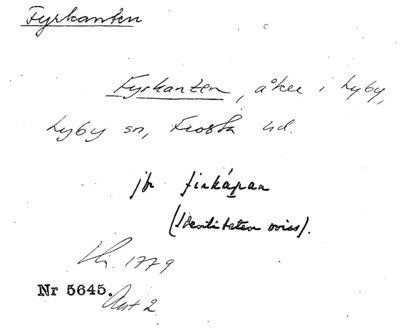 Fyrkanten
Fyrkanten, åker i Lyby,
Lyby sn, Frosta hd.
jfr firkápan
(Identiteten oviss).
1779
Nr 5645. Akt 2